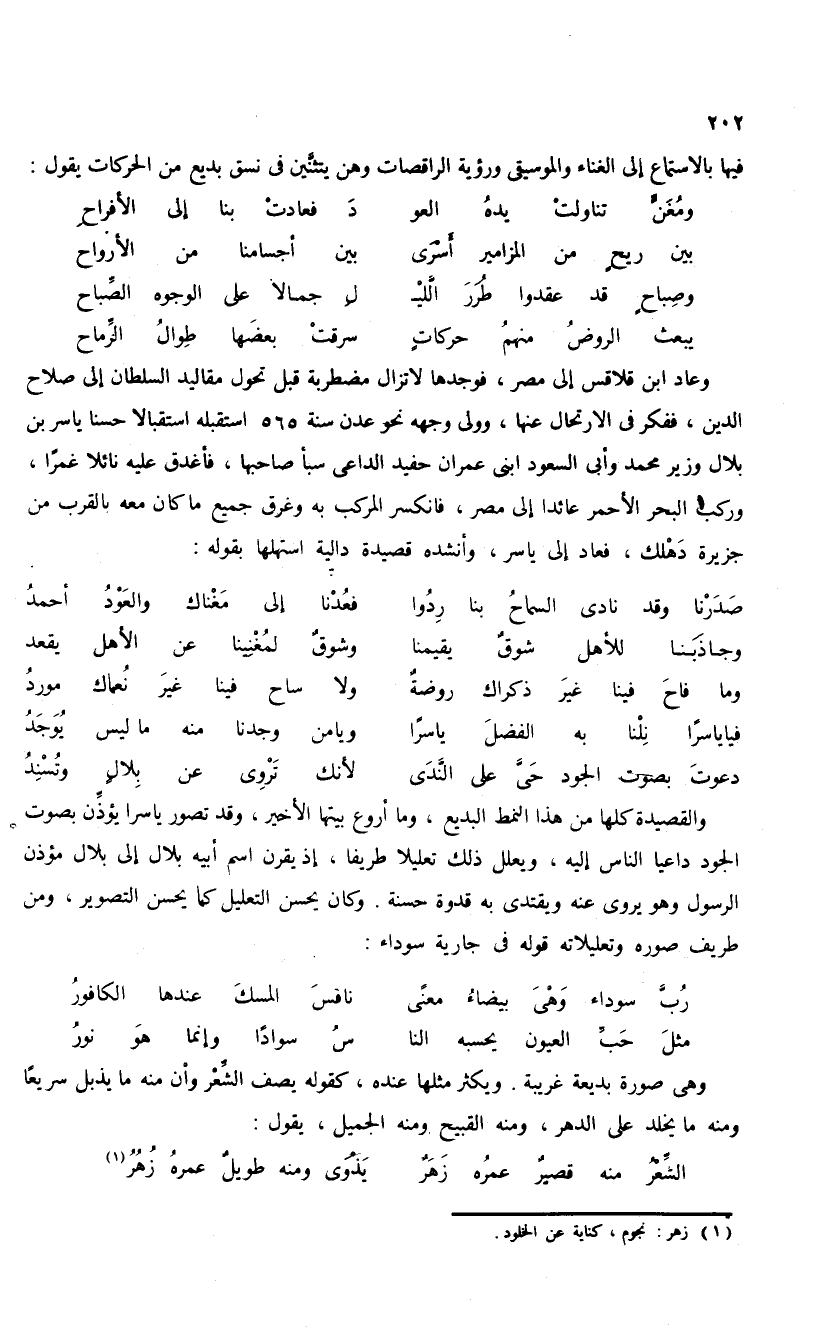 ٢٠٢
فيها بالاستماع إلى الغناء والموسيقى ورؤية الراقصات وهن يتثنَّين فى نسق بديع من الحركات يقول :
ومُغَنٍّ تناولتْ يدهُ العو دَ فعادتْ بنا إلى الأفراحِ
بين ريحٍ من المزامير أَسْرَى بين أجسامنا من الأرواح
وصِباحٍ قد عقدوا طُرَرَ الَّليْـ ـلِ جمالاً على الوجوه الصِّباح
يبعث الروضُ منهمُ حركاتٍ سرقتْ بعضَها طِوالُ الرِّماح
وعاد ابن قلاقس إلى مصر ، فوجدها لاتزال مضطربة قبل تحول مقاليد السلطان إلى صلاح
الدين ، ففكر فى الارتحال عنها ، وولى وجهه نحو عدن سنة ٥٦٥ استقبله استقبالا حسنا ياسر بن
بلال وزير محمد وأبى السعود ابنى عمران حفيد الداعى سبأ صاحبها ، فأغدق عليه نائلا غمرًا ،
وركب البحر الأحمر عائدا إلى مصر ، فانكسر المركب به وغرق جميع ماكان معه بالقرب من
جزيرة دَهْلك ، فعاد إلى ياسر ، وأنشده قصيدة دالية استهلها بقوله :
صَدَرْنا وقد نادى السماحُ بنا رِدُوا فعُدْنا إلى مَغْناك والعَوْدُ أحمدُ
وجاذَبَنا للأهل شوقٌ يقيمنا وشوقٌ لمُغْنِينا عن الأهل يقعد
وما فاحَ فينا غيرَ ذكراك روضةٌ ولا ساح فينا غيرَ نُعماك موردُ
فياياسرًا نِلْنا به الفضلَ ياسرًا ويامن وجدنا منه ماليس يُوَجَدُ
دعوتَ بصوت الجود حَىَّ على النَّدَى لأنك تَرْوِى عن بِلالٍ وتُسْنِدُ
والقصيدة كلها من هذا النمط البديع ، وما أروع بيتها الأخير ، وقد تصور ياسرا يؤذِّن بصوت
الجود داعيا الناس إليه ، ويعلل ذلك تعليلا طريفا ، إذ يقرن اسم أبيه بلال إلى بلال مؤذن
الرسول وهو يروى عنه ويقتدى به قدوة حسنة . وكان يحسن التعليل كما يحسن التصوير ، ومن
طريف صوره وتعليلاته قوله فى جارية سوداء :
رُبَّ سوداء وَهْىَ بيضاءُ معنًى نافسَ المسكَ عندها الكافورُ
مثلَ حَبِّ العيون يحسبه النا سُ سوادًا وإنما هوَ نورُ
وهى صورة بديعة غريبة . ويكثر مثلها عنده ، كقوله يصف الشِّعْر وأن منه ما يذبل سريعًا
ومنه ما يخلد على الدهر ، ومنه القبيح ومنه الجميل ، يقول :
الشِّعْرُ منه قصيرٌ عمرُه زَهَرٌ يَذْوَى ومنه طويلٌ عمرهُ زُهْرُ(١)
(١) زهر : نجوم ، كناية عن الخلود .